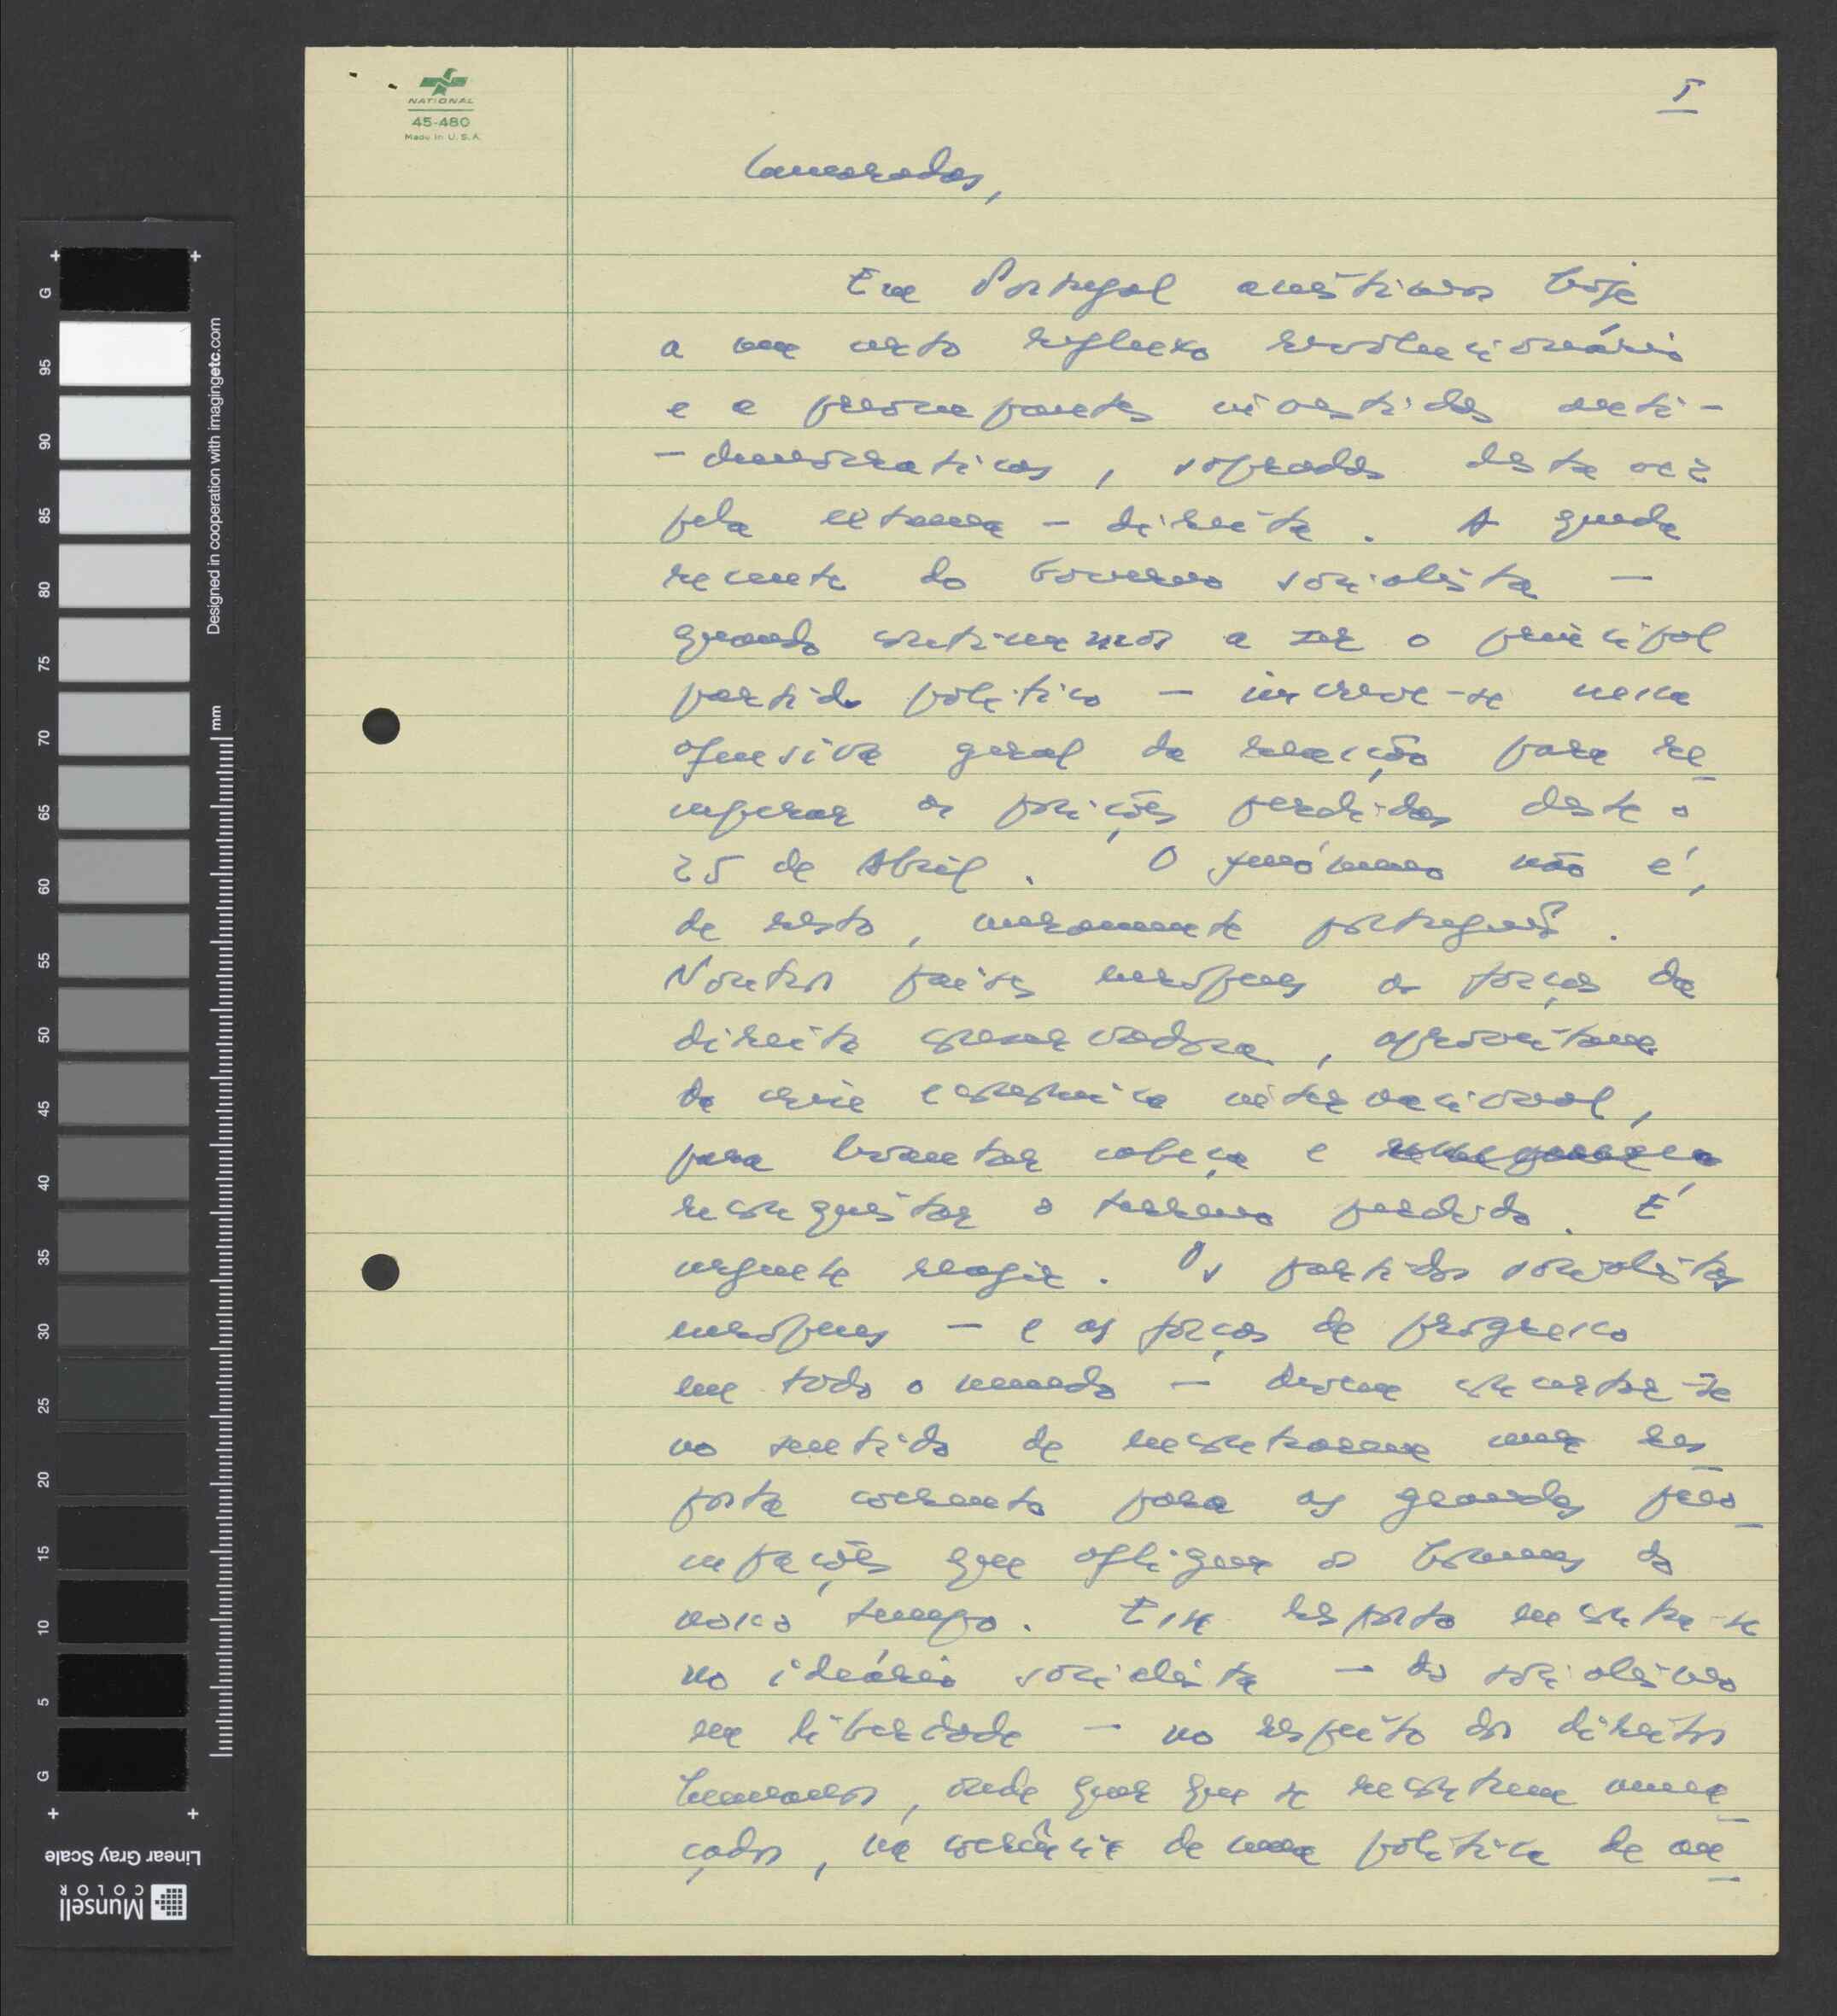 NATIONAL
45-480
Made in U.S.A.
I
Camaradas,
Em Portugal assistimos hoje
a um certo refluxo revolucionário
e a preocupantes investidas anti-
-democraticas, sopradas desta vez
pela extrema-direita. A queda
recente do Governo socialista —
quando continuamos a ser o principal
partido politico — inscreve-se nessa
ofensiva geral da reacção para re-
cuperar as posições perdidas desde o
25 de Abril. O fenómeno não é,
de resto, meramente português.
Noutros paises europeus as forças da
direita conservadora, aproveitam
da crise económica internacional,
para levantar cabeça e
reconquistar o terreno perdido. É
urgente reagir. Os partidos socialistas
europeus — e as forças de progresso
em todo o mundo — devem concertar-se
no sentido de encontrarem uma res-
posta coerente para as grandes preo-
cupações que afligem os homens do
nosso tempo. Essa resposta encontra-se
no ideário socialista — do socialismo
em liberdade — no respeito dos direitos
humanos, onde quer que se encontrem amea-
çados, na coerência de uma politica de
G
95
90
85
80
75
70
65
60
55
50
45
40
35
30
25
20
15
10
5
G
mm
Designed in cooperation with imagingetc.com
Linear Gray Scale
Munsell
COLOR